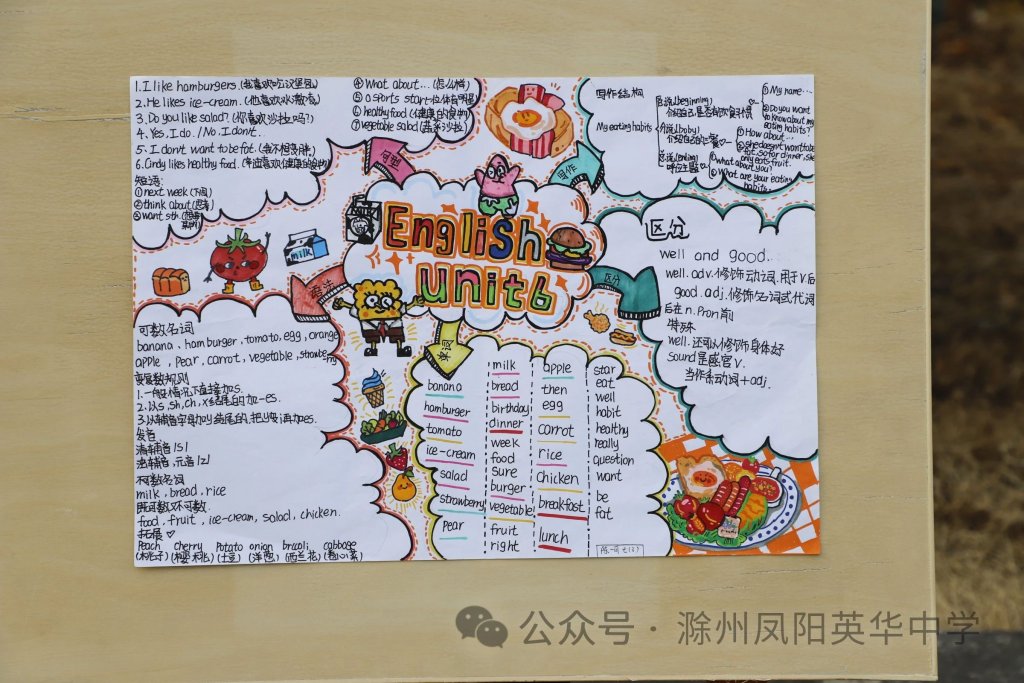 1. I like hamburgers. (我喜欢吃汉堡包)
2. He likes ice-cream. (他喜欢冰激凌)
3. Do you like salad? (你喜欢沙拉吗?)
4. Yes, I do. / No, I don't.
5. I don't want to be fat. (我不想变胖)
6. Cindy likes healthy food.
短语:
① next week (下周)
② think about (思考)
③ want sth.
④ What about... (怎么样)
⑤ a sports star 一位体育明星
⑥ healthy food (健康的食物)
⑦ vegetable salad (蔬菜沙拉)
句型
写作
写作结构
My eating habits
(beginning)
① My name...
② Do you want
to know about my
eating habits?
③ How about...
only eats fruit.
what about you?
What are your eating
habits.
milk
English
unit6
区分
区分
well and good...
well. adv. 修饰动词. 用于V.后
good. adj. 修饰名词或代词
后在 n. Pron 前
特殊
well. 还可以修饰身体好
sound 是感官 v.
当作系动词 + adj.
语法
可数名词
banana, hamburger, tomato, egg, orange
apple, pear, carrot, vegetable, strawberry
变复数规则
1. 一般情况下直接加s.
2. 以s, sh, ch, x结尾的加-es.
3. 以辅音字母加y结尾的, 把y变i再加es.
发音
清辅音 /s/
浊辅音, 元音 /z/
不可数名词
milk, bread, rice
既可数又不可数
food, fruit, ice-cream, salad, chicken.
拓展
Peach cherry Potato onion brocoli cabbage
(桃子) (樱桃) (土豆) (洋葱) (西兰花) (卷心菜)
单词
banana
hamburger
tomato
ice-cream
salad
strawberry
pear
milk
bread
birthday
dinner
week
food
sure
burger
vegetable
fruit
right
apple
then
egg
carrot
rice
chicken
breakfast
lunch
star
eat
well
habit
healthy
really
question
want
be
fat
公众号 · 滁州凤阳英华中学